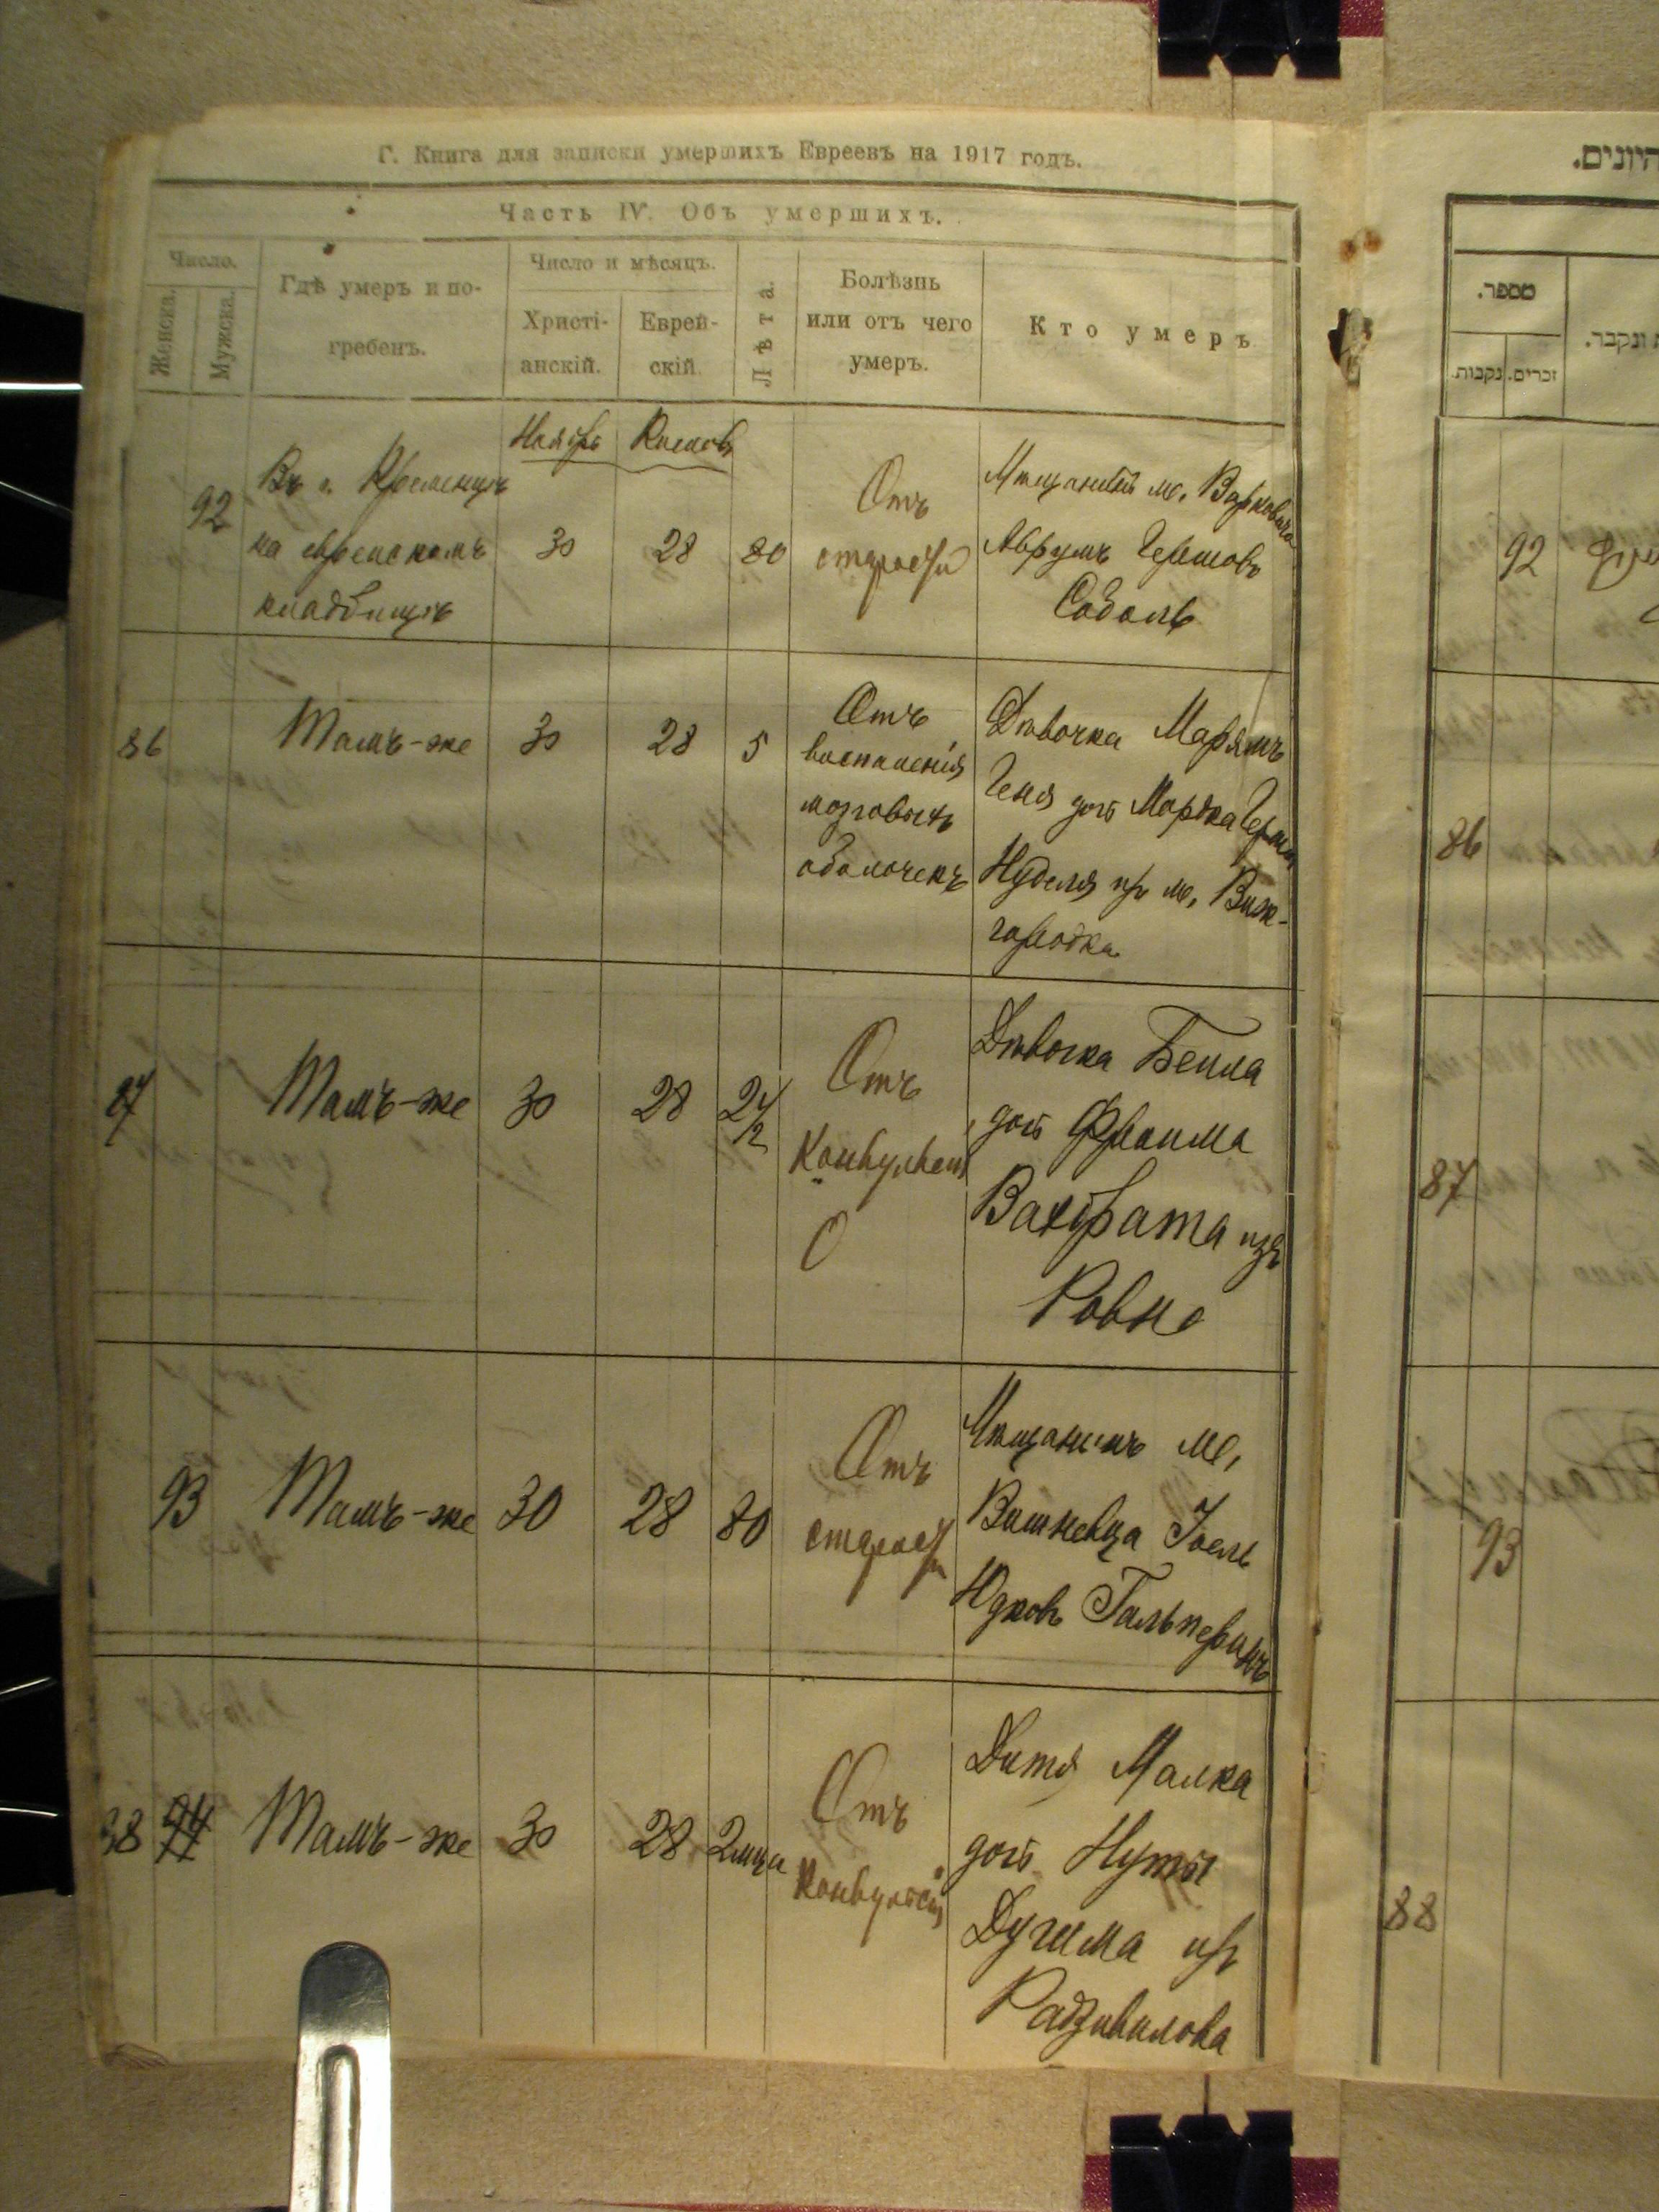 Г. Книга для записки умершихъ Евреевъ на 1917 годъ.
Часть IV. Объ умершихъ.
Число.
Женска.
Мужска.
Гдѣ умеръ и по-
гребенъ.
Число и мѣсяцъ.
Христі-
анскій.
Еврей-
скій.
Лѣта.
Болѣзнь
или отъ чего
умеръ.
Кто умеръ
Ноябрь Кислевъ
92
Въ г. Кременцѣ
на еврейскомъ
кладбищѣ
30 28 80
Отъ
старости
Мѣщанинъ м. Варковичъ
Абрумъ Гершовъ
Соболь
86 Тамъ-же 30 28 5
Отъ
воспаленія
мозговыхъ
оболочекъ
Дѣвочка Марямъ
Геня дочь Мордка
Нуделя изъ м. Выж-
городка
87 Тамъ-же 30 28 2 1/2
Отъ
Дѣвочка Бейла
дочь Фроима
изъ
Ровно
93 Тамъ-же 30 28 80
Отъ
старости
Мѣщанинъ м.
Вишневца Іоель
Юдковъ Гальперинъ
88 94 Тамъ-же 30 28 2 мца
Отъ
Конвульсій
Дитя Малка
дочь Нуты
изъ
Радзивилова
היונים.
מספר.
זכרים.
נקבות.
ונקבר.
92
86
87
93
88